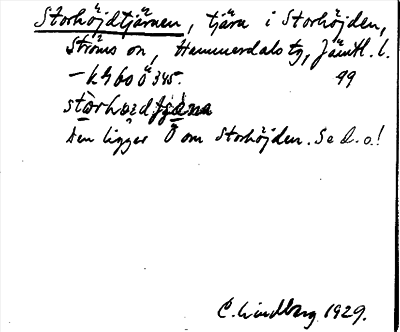 Storhöjdtjärnen, tjärn i Storhöjden,
Ströms sn, Hammerdals tg, Jämtl. l.
- k 4600 Ö 345. 99
Den ligger Ö om Storhöjden. Se d. o.!
C. Lindberg 1929.